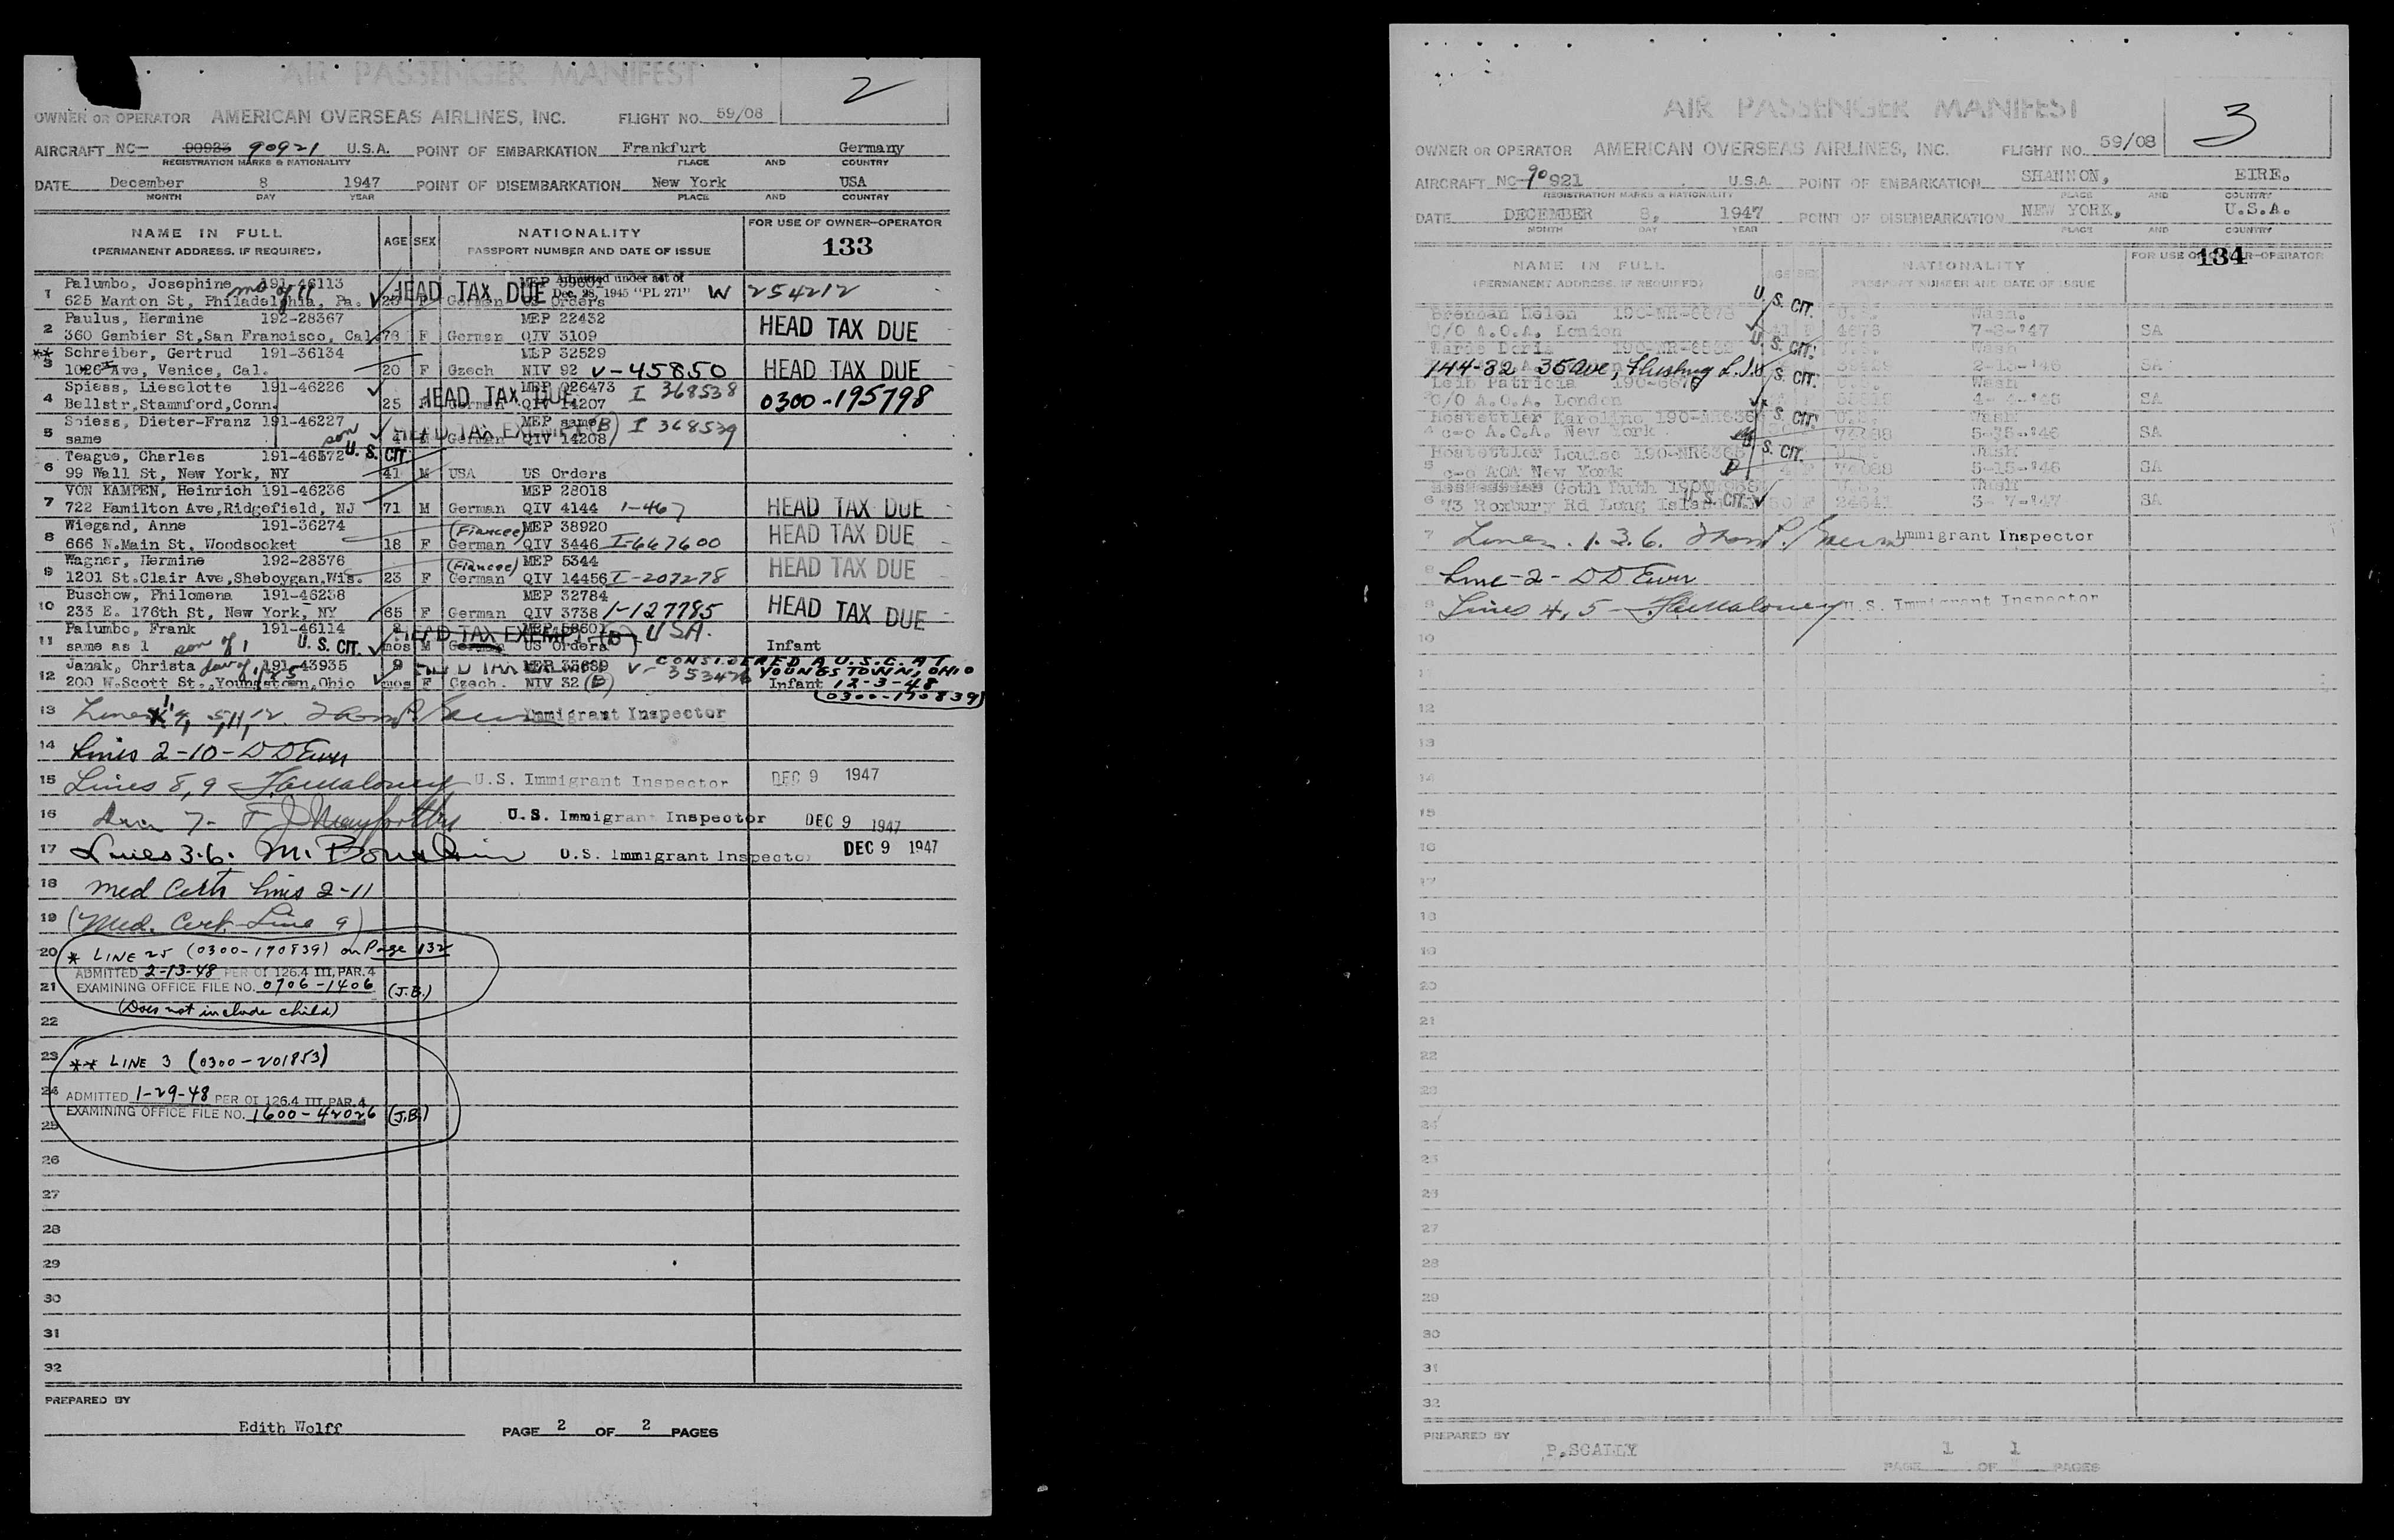 AIR PASSENGER MANIFEST
2
OWNER OR OPERATOR AMERICAN OVERSEAS AIRLINES, INC. FLIGHT NO. 59/08
AIRCRAFT NC- 90933 90921 U.S.A. POINT OF EMBARKATION Frankfurt Germany
REGISTRATION MARKS & NATIONALITY PLACE AND COUNTRY
DATE December 8 1947 POINT OF DISEMBARKATION New York USA
MONTH DAY YEAR PLACE AND COUNTRY
NAME IN FULL AGE SEX NATIONALITY FOR USE OF OWNER-OPERATOR
(PERMANENT ADDRESS, IF REQUIRED) PASSPORT NUMBER AND DATE OF ISSUE 133
1 Palumbo, Josephine 191-46113 mo of 11 HEAD TAX DUE Admitted under act of
625 Manton St, Philadelphia, Pa. German US Orders Dec. 28, 1945 "PL 271" W 254212
2 Paulus, Hermine 192-28367 MEP 22432
360 Gambier St,San Francisco, Cal. 78 F German QIV 3109 HEAD TAX DUE
** 3 Schreiber, Gertrud 191-36134 MEP 32529
Ave, Venice, Cal. 20 F Czech NIV 92 V-45850 HEAD TAX DUE
4 Spiess, Lieselotte 191-46226 HEAD TAX DUE MEP 026473 I 368538
Bellstr,Stammford,Conn. 25 F German QIV 14207 0300-195798
5 Spiess, Dieter-Franz 191-46227 HEAD TAX EXEMPT (B) MEP same I 368539
same son 4 German QIV 14208
6 Teague, Charles 191-46572 U. S. CIT.
99 Wall St, New York, NY 41 M USA US Orders
7 VON KAMPEN, Heinrich 191-46236 MEP 28018
722 Hamilton Ave,Ridgefield, NJ 71 M German QIV 4144 1-467 HEAD TAX DUE
8 Wiegand, Anne 191-36274 (Fiancee) MEP 38920 HEAD TAX DUE
666 N.Main St. Woodsocket 18 F German QIV 3446 I-667600
9 Wagner, Hermine 192-28376 (Fiancee) MEP 5344 HEAD TAX DUE
1201 St.Clair Ave,Sheboygan,Wis. 23 F German QIV 14456 I-207278
10 Buschow, Philomena 191-46238 MEP 32784
233 E. 176th St, New York, NY 65 F German QIV 3738 1-127785 HEAD TAX DUE
11 Palumbo, Frank 191-46114 HEAD TAX EXEMPT (B) USA.
same as 1 son of 1 U. S. CIT. mos M German US Orders Infant
12 Janak, Christa 191-43935 9 MEP 35689 V-353476 CONSIDERED A U.S.C. AT
200 W.Scott St.,Youngstown,Ohio mos F Czech. NIV 32 (B) YOUNGSTOWN, OHIO
Infant 12-3-48
(0300-170839)
13 Immigrant Inspector
14 Lines 2-10- D D Ewen
15 Lines 8,9 U.S. Immigrant Inspector DEC 9 1947
16 7- U.S. Immigrant Inspector DEC 9 1947
17 Lines 3.6. M. U.S. Immigrant Inspector DEC 9 1947
18 Med Certs lines 2-11
19 (Med. Cert. Line 9)
20 * LINE 25 (0300-170839) on Page 132
ADMITTED 2-13-48 PER OI 126.4 III, PAR. 4
21 EXAMINING OFFICE FILE NO. 0706-1406 (J.B.)
(Does not include child)
22
23 ** LINE 3 (0300-201853)
24 ADMITTED 1-29-48 PER OI 126.4 III PAR. 4
EXAMINING OFFICE FILE NO. 1600-42026 (J.B.)
25
26
27
28
29
30
31
32
PREPARED BY
Edith Wolff PAGE 2 OF 2 PAGES
AIR PASSENGER MANIFEST
3
OWNER OR OPERATOR AMERICAN OVERSEAS AIRLINES, INC. FLIGHT NO. 59/08
AIRCRAFT NC-90921 U.S.A. POINT OF EMBARKATION SHANNON, EIRE.
REGISTRATION MARKS & NATIONALITY PLACE AND COUNTRY
DATE DECEMBER 8, 1947 POINT OF DISEMBARKATION NEW YORK, U.S.A.
MONTH DAY YEAR PLACE AND COUNTRY
NAME IN FULL AGE SEX NATIONALITY FOR USE OF OWNER-OPERATOR
134
(PERMANENT ADDRESS, IF REQUIRED) PASSPORT NUMBER AND DATE OF ISSUE
Brennan Helen U. S. CIT. U.S. Wash.
C/O A.O.A. London 41 F 4678 7-8-'47 SA
Doris U. S. CIT. Wash
144-82 35 Ave, Flushing L.I. SA
Leib Patricia U. S. CIT. U.S. Wash
C/O A.O.A. London SA
Hostettler Karoline U. S. CIT. U.S. Wash
c-o A.O.A. New York SA
5 Hostettler Louise 190-NR6365 U. S. CIT. Wash
c-o AOA New York 4 F 74088 5-15-'46 SA
6 Goth Ruth U. S. CIT. U.S. Wash
73 Roxbury Rd Long Island F 3-7-'47 SA
7 Lines. 1. 3. 6. Immigrant Inspector
8 Line-2- D D Ewen
9 Lines 4,5- U.S. Immigrant Inspector
10
11
12
13
14
15
16
17
18
19
20
21
22
23
24
25
26
27
28
29
30
31
32
PREPARED BY
P.SCALLY PAGE 1 OF 1 PAGES